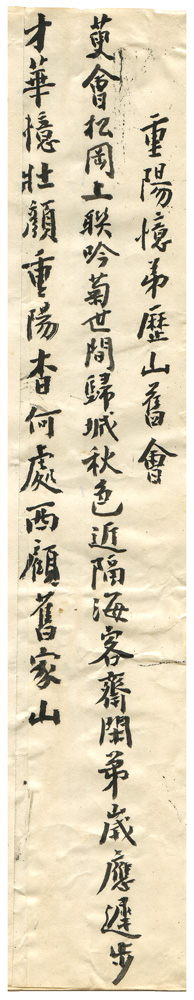 重陽憶弟歷山舊會
萸會松岡上聯吟菊世間歸城秋色近隔海客齋閑弟歲應遲步
才華憶壯顏重陽杳何處西顧舊家山